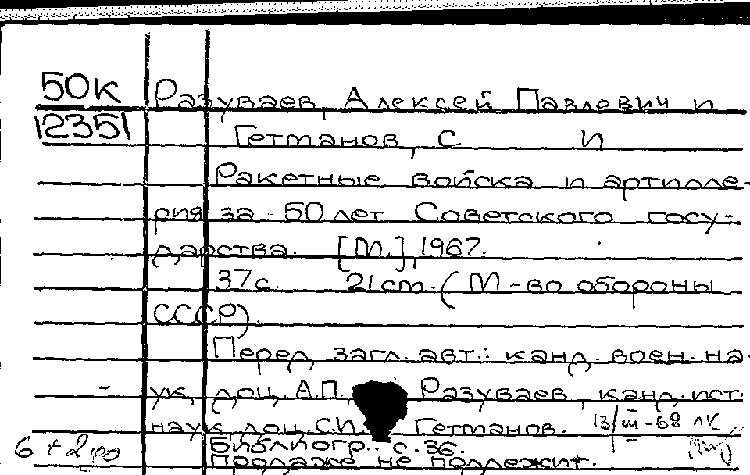 50к Разуваев, Алексей Павлевич и
12351 Гетманов, С И
Ракетные войска и артилле-
рия за 50 лет Советского госу-
дарства. [М.], 1967.
37с. 21 cm. (М-во обороны
СССР).
Перед загл. авт.: канд. воен. на-
ук, доц. А.П. Разуваев, канд. ист.
наук доц. С.И. Гетманов. 13/III-68 ЛК
Библиогр.: с. 36.
6 + 2
Продаже не подлежит.